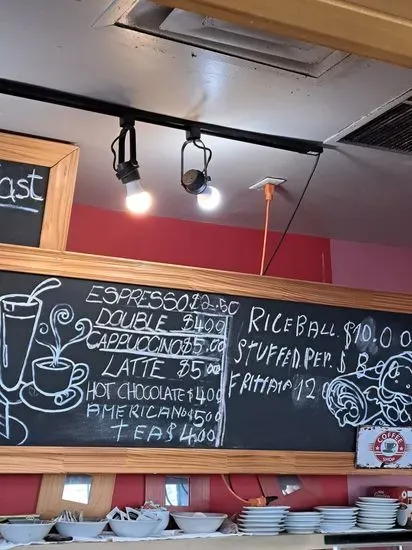 ast
ESPRESSO $2.50
DOUBLE $4.00
CAPPUCCINO $5.00
LATTE $5.00
HOT CHOCOLATE $4.00
AMERICANO $5.00
TEA $4.00
RICE BALL. $10.00
STUFFED PEP. $ 8
FRITTATA 12.0
COFFEE
SHOP